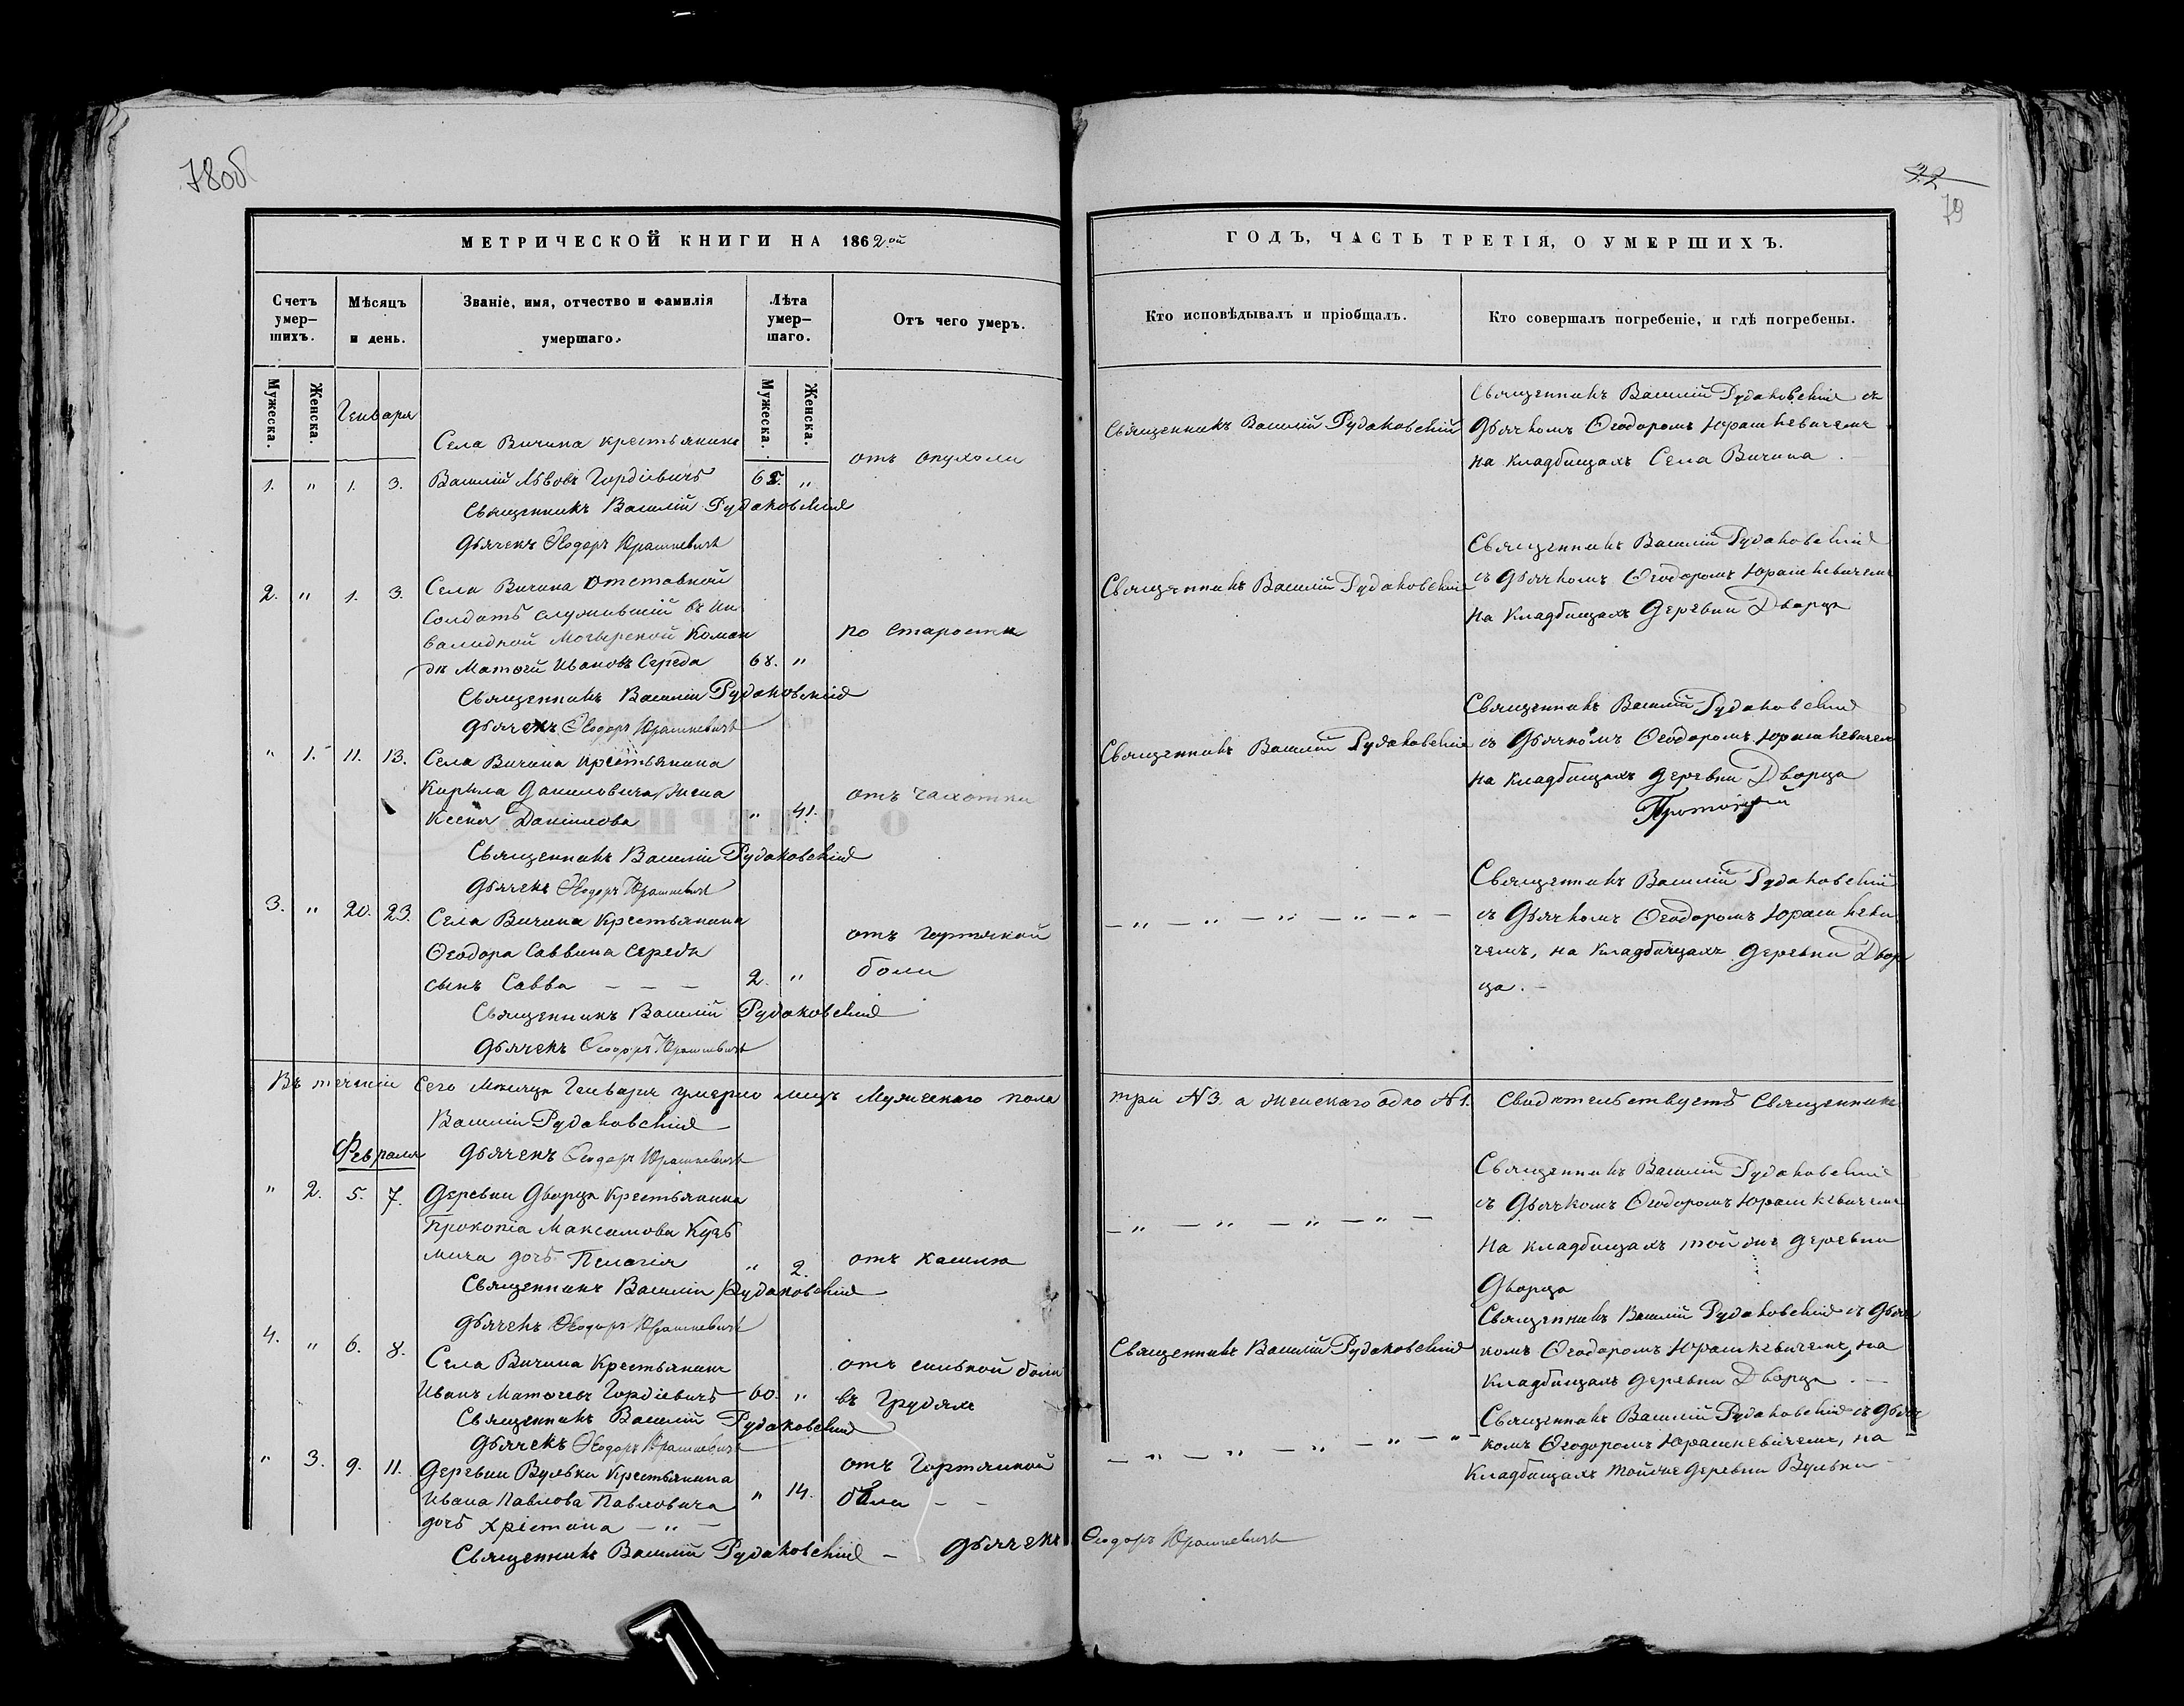 78об
МЕТРИЧЕСКОЙ КНИГИ НА 1862.ой
Счетъ умер-шихъ.
Мѣсяцъ и день.
Званіе, имя, отчество и фамилія умершаго.
Лѣта умер-шаго.
Отъ чего умеръ.
Мужеска.
Женска.
Генваря
Мужеска.
Женска.
Села Вичина крестьянинъ
1. " 1. 3. Василій Львовъ Гордіевичъ 65. " отъ опухоли
Священникъ Василій Рудаковскій
Дьячекъ Ѳеодоръ Юрашкевичъ
2. " 1. 3. Села Вичина отставной
солдатъ служившій въ Ин-
валидной Мозырской Коман
дѣ Матѳей Ивановъ Середа 68. " по старости
Священникъ Василій Рудаковскій
Дьячекъ Ѳеодоръ Юрашкевичъ
" 1. 11. 13. Села Вичина крестьянина
Кирила Даниловича жена
Ксенія Данилова " 41. отъ чахотки
Священникъ Василій Рудаковскій
Дьячекъ Ѳеодоръ Юрашкевичъ
3. " 20. 23. Села Вичина Крестьянина
Ѳеодора Саввина Середы
сынъ Савва — — — 2. " отъ гортяной
боли
Священникъ Василій Рудаковскій
Дьячекъ Ѳеодоръ Юрашкевичъ
Въ теченіи сего Мѣсяца Генваря умерло лицъ Мужескаго пола
Василій Рудаковскій
Февраля Дьячекъ Ѳеодоръ Юрашкевичъ
" 2. 5. 7. Деревни Дворца Крестьянина
Прокопіа Максимова Кузь
мича дочь Пелагія " 2. отъ кашлю
Священникъ Василій Рудаковскій
Дьячекъ Ѳеодоръ Юрашкевичъ
4. " 6. 8. Села Вичина Крестьянинъ отъ сильной боли
Иванъ Матѳеевъ Гордіевичъ 60. " въ грудяхъ
Священникъ Василій Рудаковскій
Дьячекъ Ѳеодоръ Юрашкевичъ
" 3. 9. 11. Деревни Вульки Крестьянина отъ Гортяной
Ивана Павлова Павловича " 14. боли — —
дочь Хрістина — " —
Священникъ Василій Рудаковскій — Дьячекъ Ѳеодоръ Юрашкевичъ
32
79
ГОДЪ, ЧАСТЬ ТРЕТІЯ, О УМЕРШИХЪ.
Кто исповѣдывалъ и пріобщалъ.
Кто совершалъ погребеніе, и гдѣ погребены.
Священникъ Василій Рудаковскій
Священникъ Василій Рудаковскій съ
Дьячкомъ Ѳеодоромъ Юрашкевичемъ
на кладбищахъ Села Вичина.
Священникъ Василій Рудаковскій
Священникъ Василій Рудаковскій
съ Дьячкомъ Ѳеодоромъ Юрашкевичемъ
на Кладбищахъ Деревни Дворца
Священникъ Василій Рудаковскій
Священникъ Василій Рудаковскій
съ Дьячкомъ Ѳеодоромъ Юрашкевичемъ
на кладбищахъ деревни Дворца
— " — " — " — " —
Священникъ Василій Рудаковскій
съ Дьячкомъ Ѳеодоромъ Юрашкеви
чемъ, на кладбищахъ Деревни Двор
ца. —
три №3. а женскаго одно №1. Свидѣтельствуетъ Священникъ
— " — " — " — " —
Священникъ Василій Рудаковскій
съ Дьячкомъ Ѳеодоромъ Юрашкевичемъ
на кладбищахъ той же деревни
Дворца
Священникъ Василій Рудаковскій
Священникъ Василій Рудаковскій съ Дьяч
комъ Ѳеодоромъ Юрашкевичемъ, на
кладбищахъ деревни Дворца. —
— " — " — " — " — " —
Священникъ Василій Рудаковскій съ Дьяч
комъ Ѳеодоромъ Юрашкевичемъ, на
Кладбищахъ той же деревни Вульки